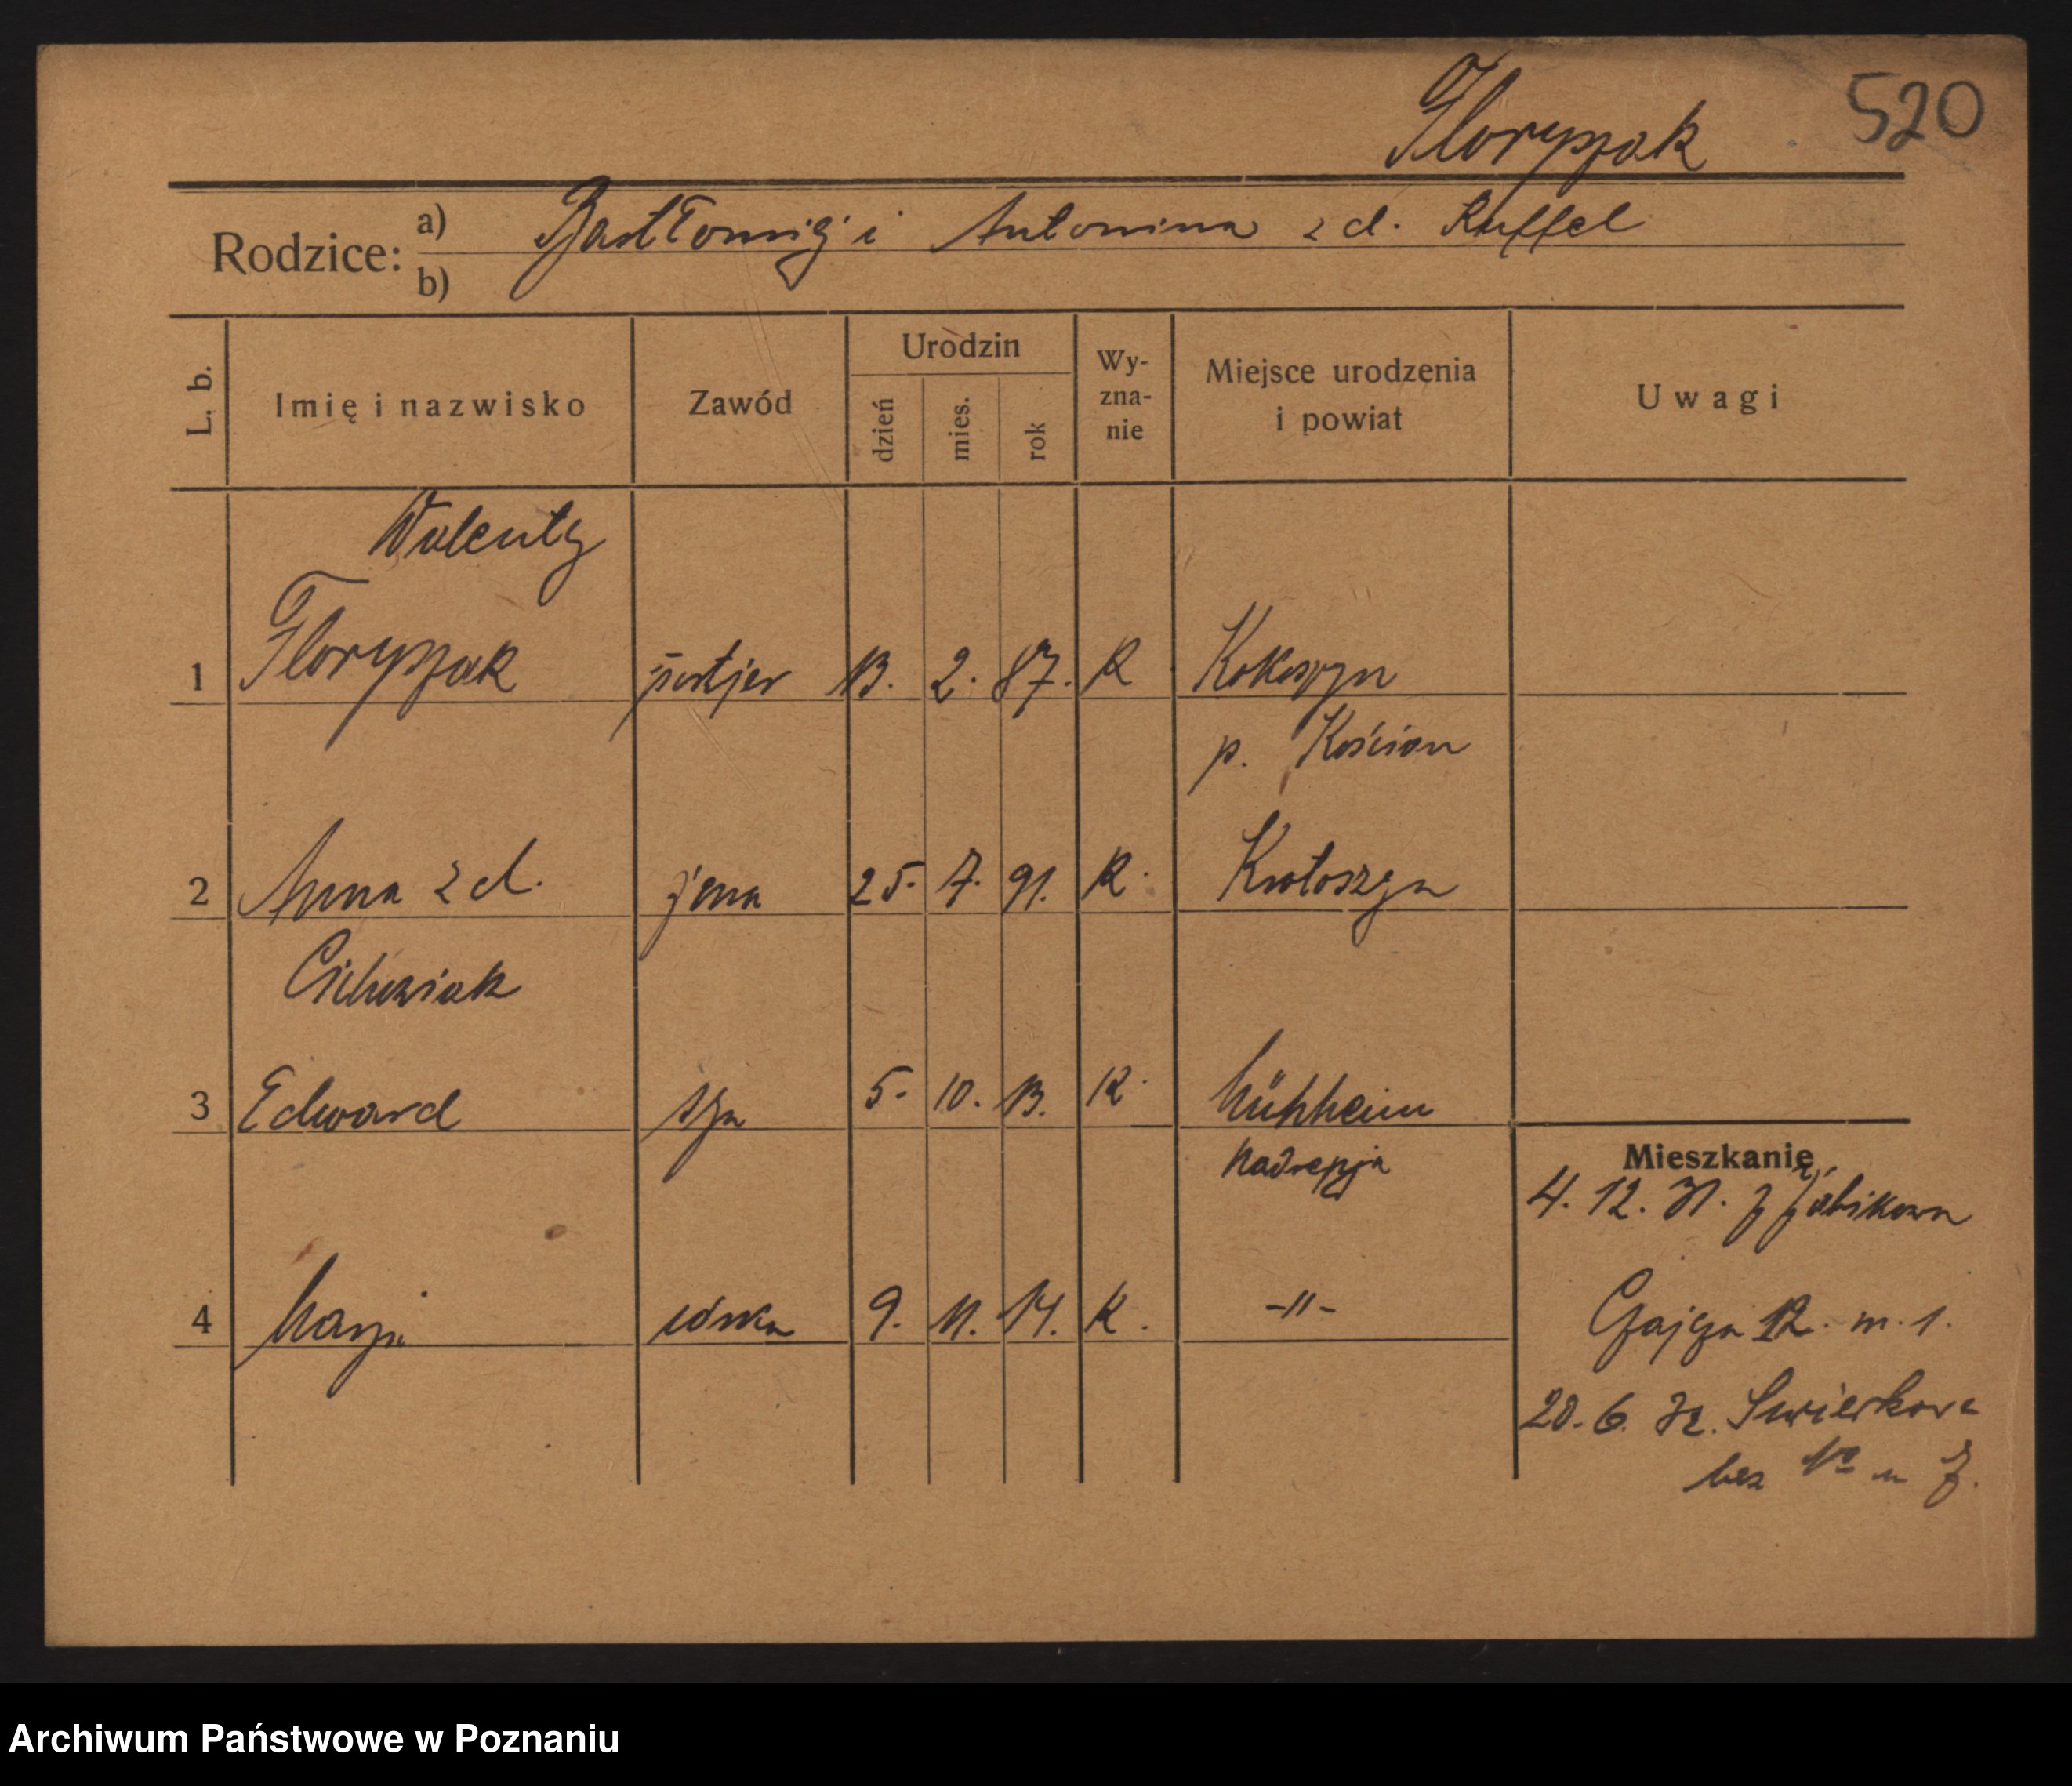 Floryszak 520
Rodzice: a) Bartłomiej i Antonina z d. Ruffel
b)
L. b. Imię i nazwisko Zawód Urodzin dzień mies. rok Wy-zna-nie Miejsce urodzenia i powiat Uwagi
Walenty
1 Floryszak portjer 13. 2. 87. K Kokoszyn
p. Kościan
2 Anna z d. żona 25. 7. 91. K. Krotoszyn
Cichoziak
3 Edward syn 5. 10. 13. K. Mühlheim
Nadrenja
Mieszkanie
4. 12. 31. z Żabikowa
4 Marja córka 9. 11. 14. K. -"-
Gajowa 12. m. 1.
20. 6. 32. Świerkowa
bez No m 7.
Archiwum Państwowe w Poznaniu